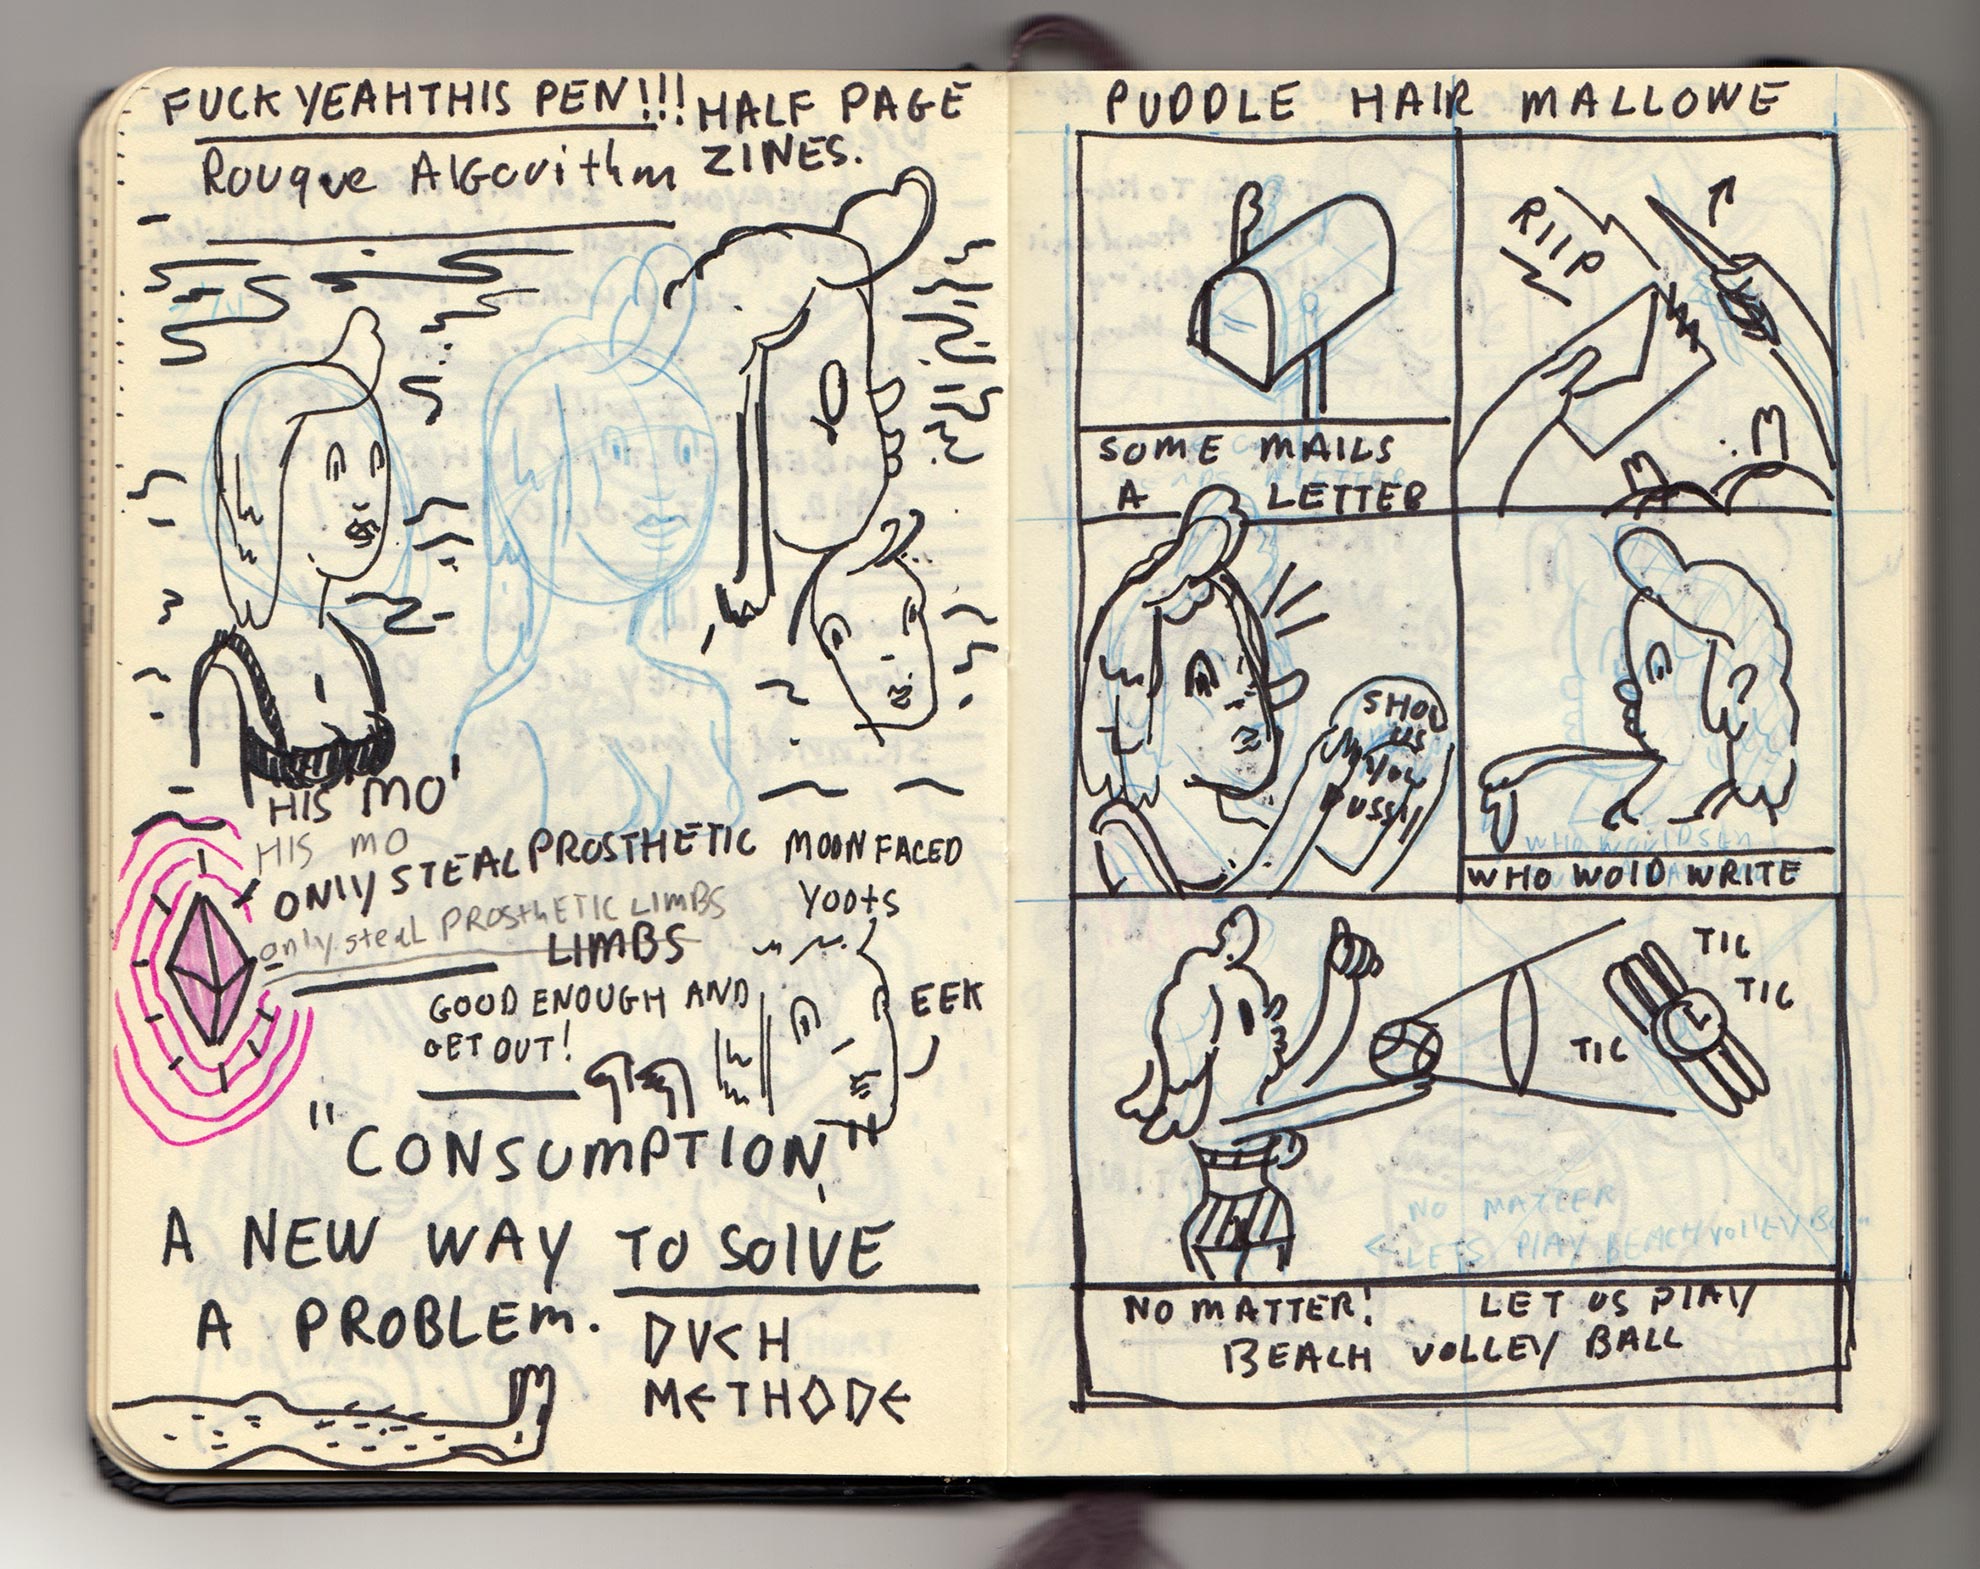 FUCK YEAH THIS PEN!!!
HALF PAGE
ZINES.
Rouque Algorithm
HIS MO'
HIS MO
ONLY STEAL PROSTHETIC
only steal PROSthETIC LIMBS
LIMBS
MOON FACED
YOOtS
GOOD ENOUGH AND
GET OUT!
EEK
"CONSUMPTION,"
A NEW WAY TO SOLVE
A PROBLEM.
DUCH
METHODE
PUDDLE HAIR MALLOWE
SOME MAILS
A LETTER
RIIP
SHOW
US
YOU
PUSSY
WHO WOULD SEN
WHO WOID WRITE
TIC
TIC
TIC
NO MATTER
LETS PLAY BEACH VOLLEY BALL
NO MATTER! LET US PLAY
BEACH VOLLEY BALL